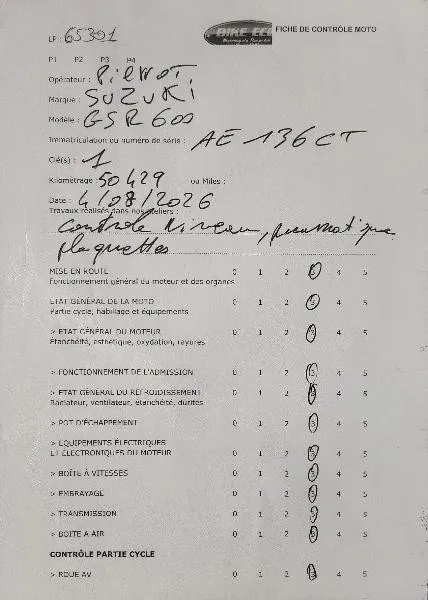 LP : 65391
BIKE ECO FICHE DE CONTRÔLE MOTO
P1 P2 P3 P4
Opérateur : Pierrot
Marque : SUZUKI
Modèle : GSR 600
Immatriculation ou numéro de série : AE 136 CT
Clé(s) : 1
Kilométrage : 50429 ou Miles :
Date : 4/08/2026
Travaux réalisés dans nos ateliers :
Controle Niveau, pneumatique
plaquettes
MISE EN ROUTE 0 1 2 3 4 5
Fonctionnement général du moteur et des organes
ETAT GÉNÉRAL DE LA MOTO 0 1 2 3 4 5
Partie cycle, habillage et équipements
> ETAT GÉNÉRAL DU MOTEUR 0 1 2 3 4 5
Etanchéité, esthétique, oxydation, rayures
> FONCTIONNEMENT DE L'ADMISSION 0 1 2 3 4 5
> ETAT GÉNÉRAL DU REFROIDISSEMENT 0 1 2 3 4 5
Radiateur, ventilateur, étanchéité, durites
> POT D'ÉCHAPPEMENT 0 1 2 3 4 5
> EQUIPEMENTS ÉLECTRIQUES
ET ÉLECTRONIQUES DU MOTEUR 0 1 2 3 4 5
> BOÎTE À VITESSES 0 1 2 3 4 5
> EMBRAYAGE 0 1 2 3 4 5
> TRANSMISSION 0 1 2 3 4 5
> BOITE A AIR 0 1 2 3 4 5
CONTRÔLE PARTIE CYCLE
> ROUE AV 0 1 2 3 4 5